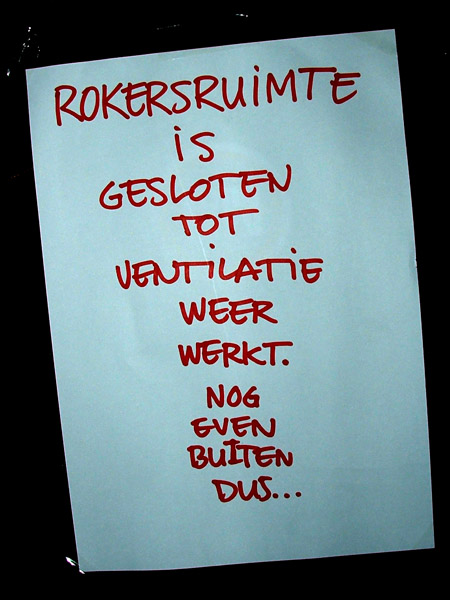 ROKERSRUiMTE
iS
GESLOTEN
TOT
VENTiLATiE
WEER
WERKT.
NOG
EVEN
BUITEN
DUS...